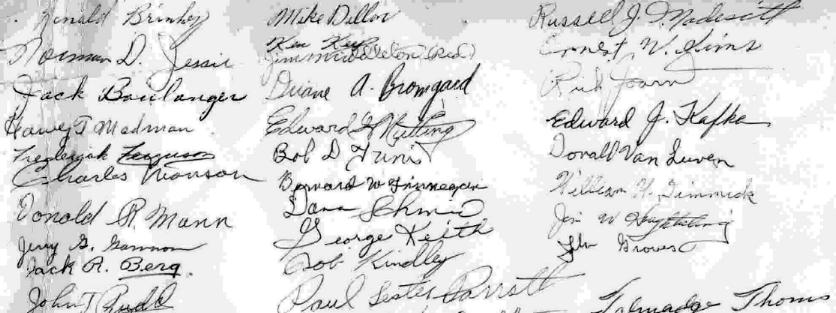 Ronald Brinkey
Norman D. Jessie
Jack Boulanger
Harvey T Madman
Frederick Ferguson
Charles Monson
Donald R. Mann
Jerry G. Gannon
Jack R. Berg.
John T Rudd
Mike Dillon
Ken
Jim Middleton (Red)
Duane A. Bromgard
Edward G Nutting
Bob D
Bernard W Finnegan
Dana
George Keith
Bob Kindley
Paul Lester Parrott
Russell J. Modesitt
Ernest W. Sims
Edward J. Kafka
Donald Van Luven
William H. Dimmick
Jim W
Groves
Talmadge Thoms